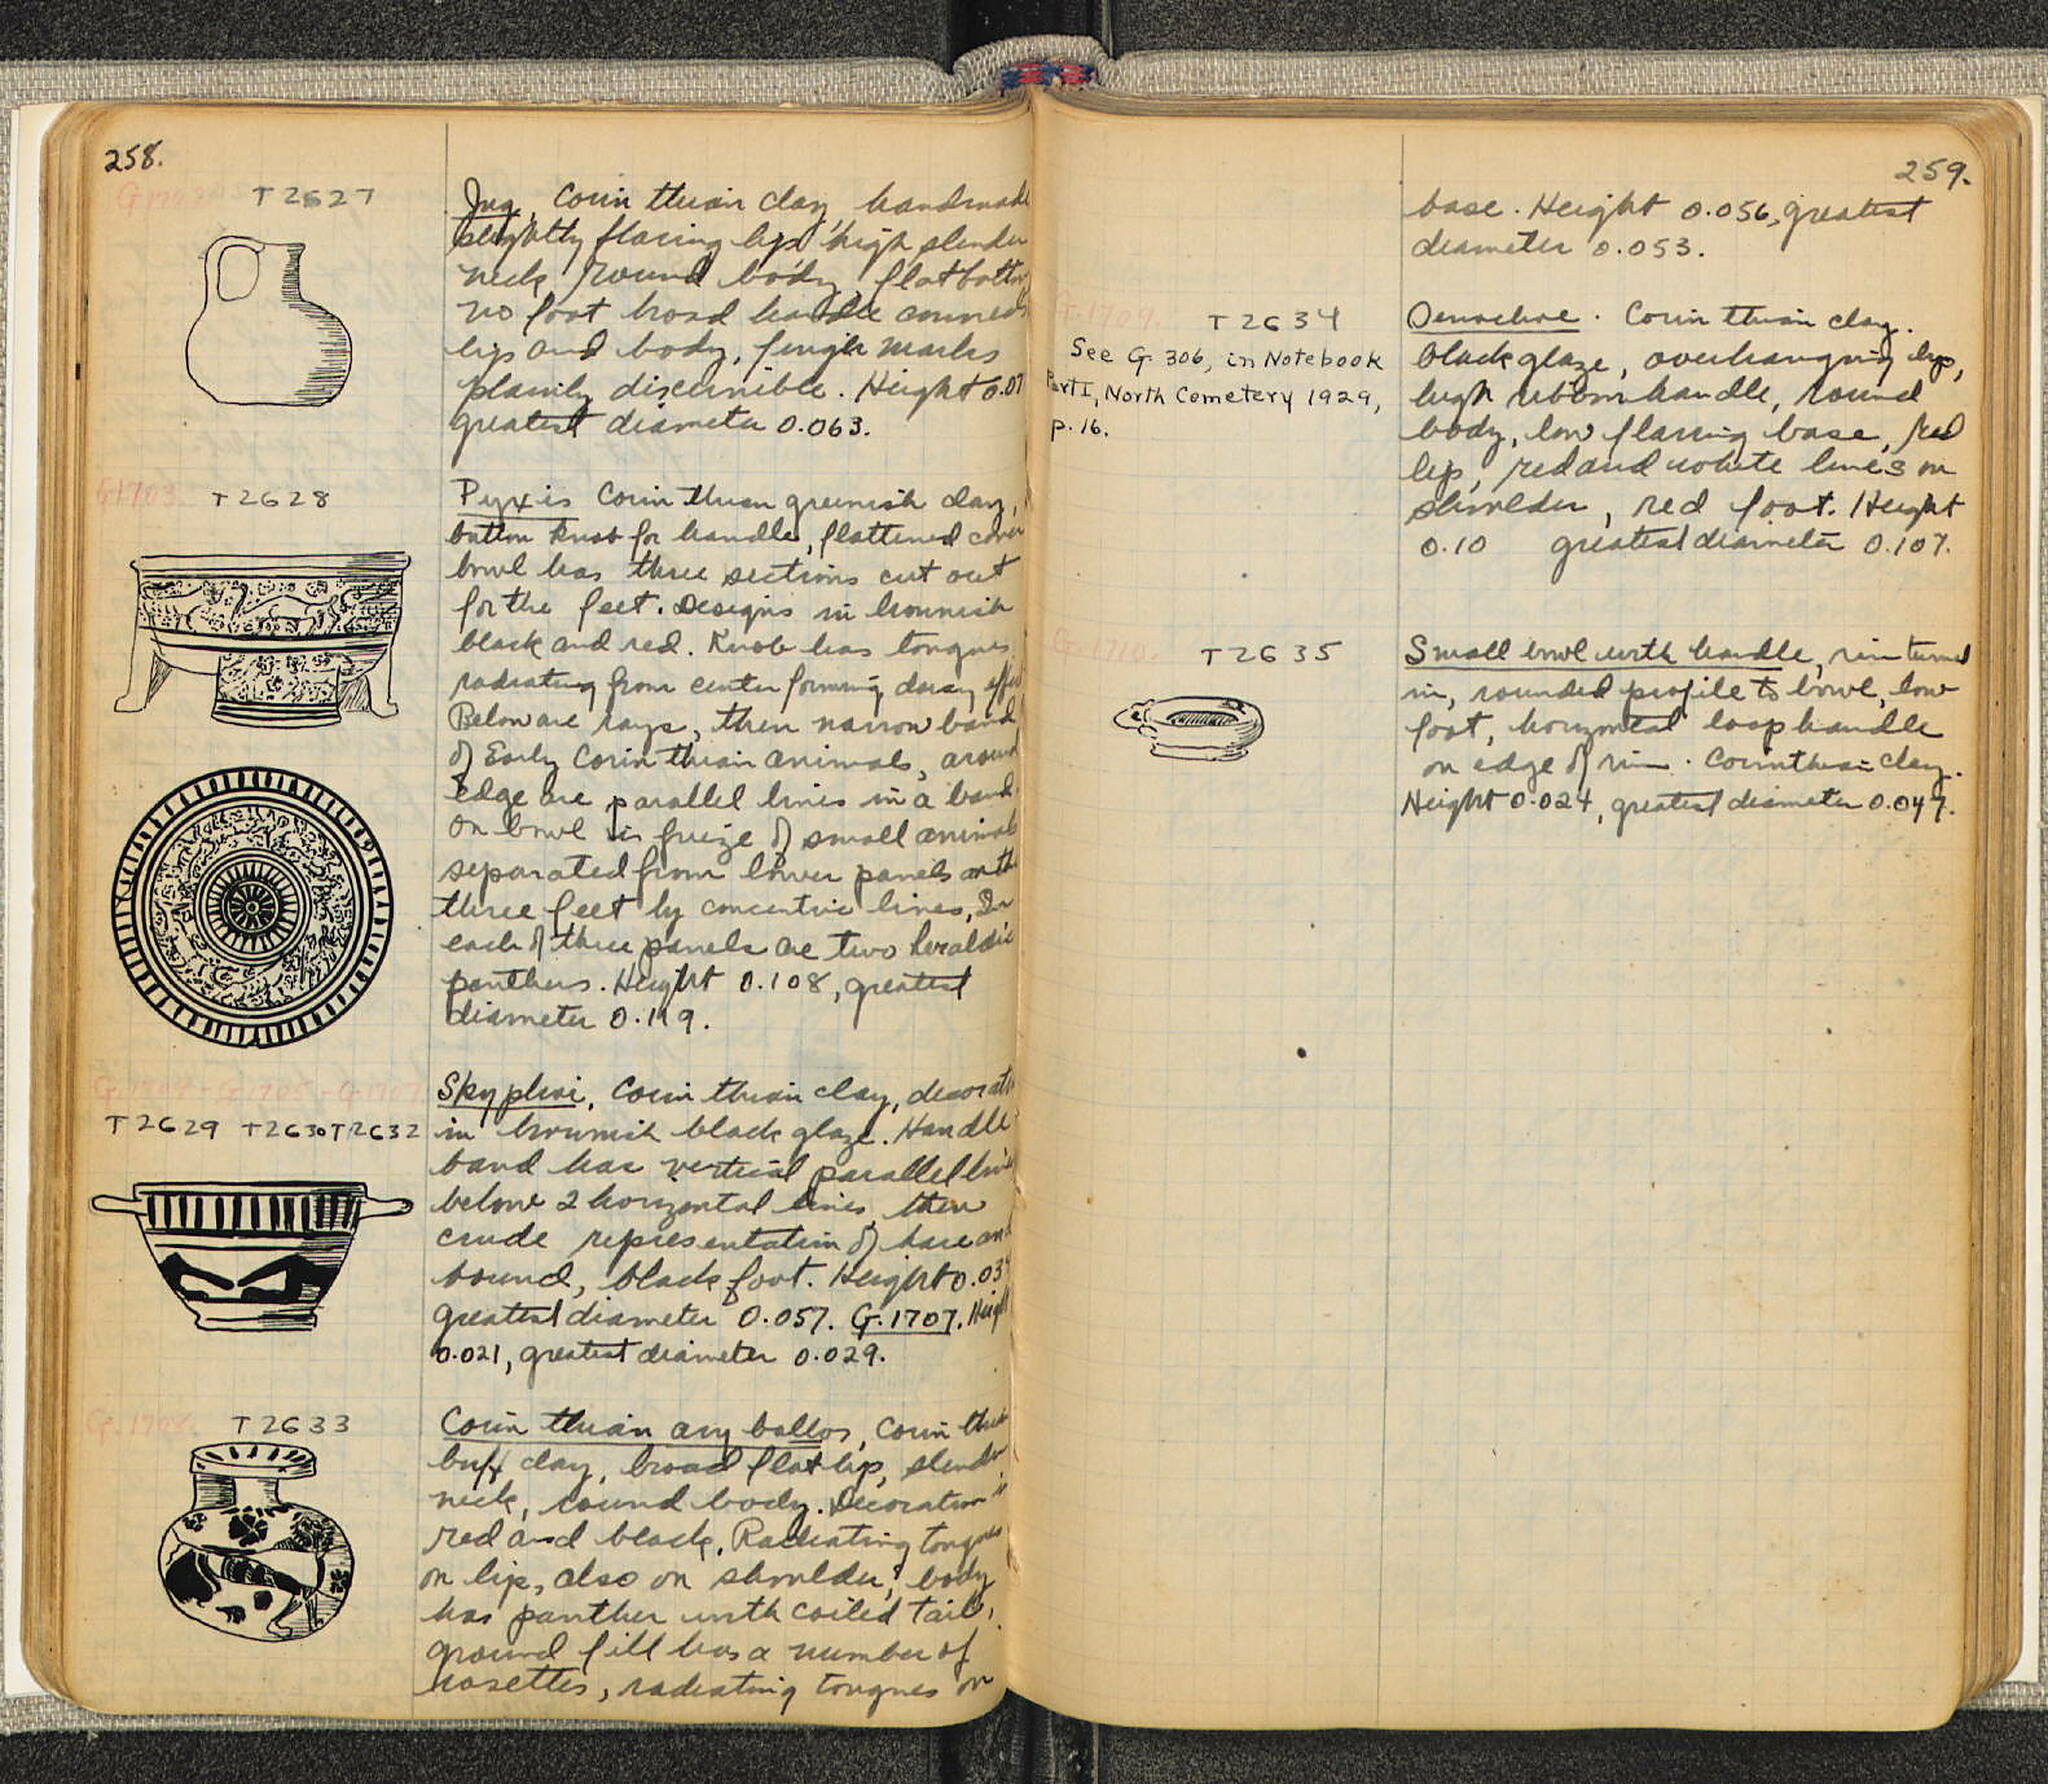 258.
G1702 T2627
Jug, Corinthian clay, handmade
slightly flaring lip, high slender
neck, round body, flat bottom
no foot broad handle connects
lip and body, finger marks
plainly discernible. Height 0.07
greatest diameter 0.063.
G1703. T2628
Pyxis Corinthian greenish clay,
button knob for handle, flattened cover
bowl has three sections cut out
for the feet. Designs in brownish
black and red. Knob has tongues
radiating from center forming daisy effect
Below are rays, then narrow band
of Early Corinthian animals, around
edge are parallel lines in a band
on bowl is frieze of small animals
separated from lower panels on the
three feet by concentric lines, In
each of three panels are two heraldic
panthers. Height 0.108, greatest
diameter 0.119.
G.1704-G.1705-G.1707
T2629 T2630 T2632
Skyphoi, Corinthian clay, decorated
in brownish black glaze. Handle
band has vertical parallel lines
below 2 horizontal lines, then
crude representation of hare and
hound, black foot. Height 0.03
greatest diameter 0.057. G.1707. Height
0.021, greatest diameter 0.029.
G.1708. T2633
Corinthian aryballos, Corinthian
buff clay, broad flat lip, slender
neck, round body. Decoration in
red and black. Radiating tongues
on lip, also on shoulder, body
has panther with coiled tail,
ground fill has a number of
rosettes, radiating tongues on
259.
base. Height 0.056, greatest
diameter 0.053.
G.1709. T2634
See G. 306, in Notebook
Part I, North Cemetery 1929,
p. 16.
Oenochoe. Corinthian clay.
black glaze, overhanging lip,
high ribbon handle, round
body, low flaring base, red
lip, red and white lines on
shoulder, red foot. Height
0.10 greatest diameter 0.107.
G.1710. T2635
Small bowl with handle, rim turned
in, rounded profile to bowl, low
foot, horizontal loop handle
on edge of rim. Corinthian clay.
Height 0.024, greatest diameter 0.047.